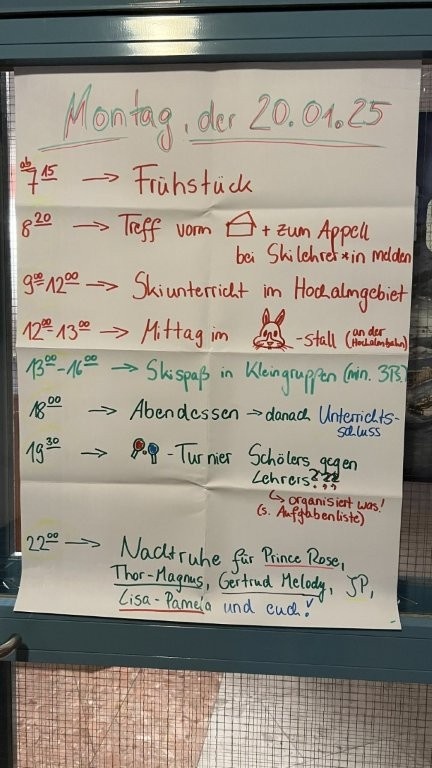 Montag, der 20.01.25
ab 7 15 → Frühstück
8 20 → Treff vorm + zum Appell
bei Skilehrer*in melden
9 00 - 12 00 → Skiunterricht im Hochalmgebiet
12 00 - 13 00 → Mittag im -stall (an der Hochalmbahn)
13 00 - 16 00 → Skispaß in Kleingruppen (min. 3 P.)
18 00 → Abendessen → danach Unterrichts-
schluss
19 30 → -Turnier Schölers gegen
Lehrers????
↳ organisiert was!
(s. Aufgabenliste)
22 00 → Nachtruhe für Prince Rose,
Thor-Magnus, Gertrud Melody, JP,
Lisa-Pamela und euch!